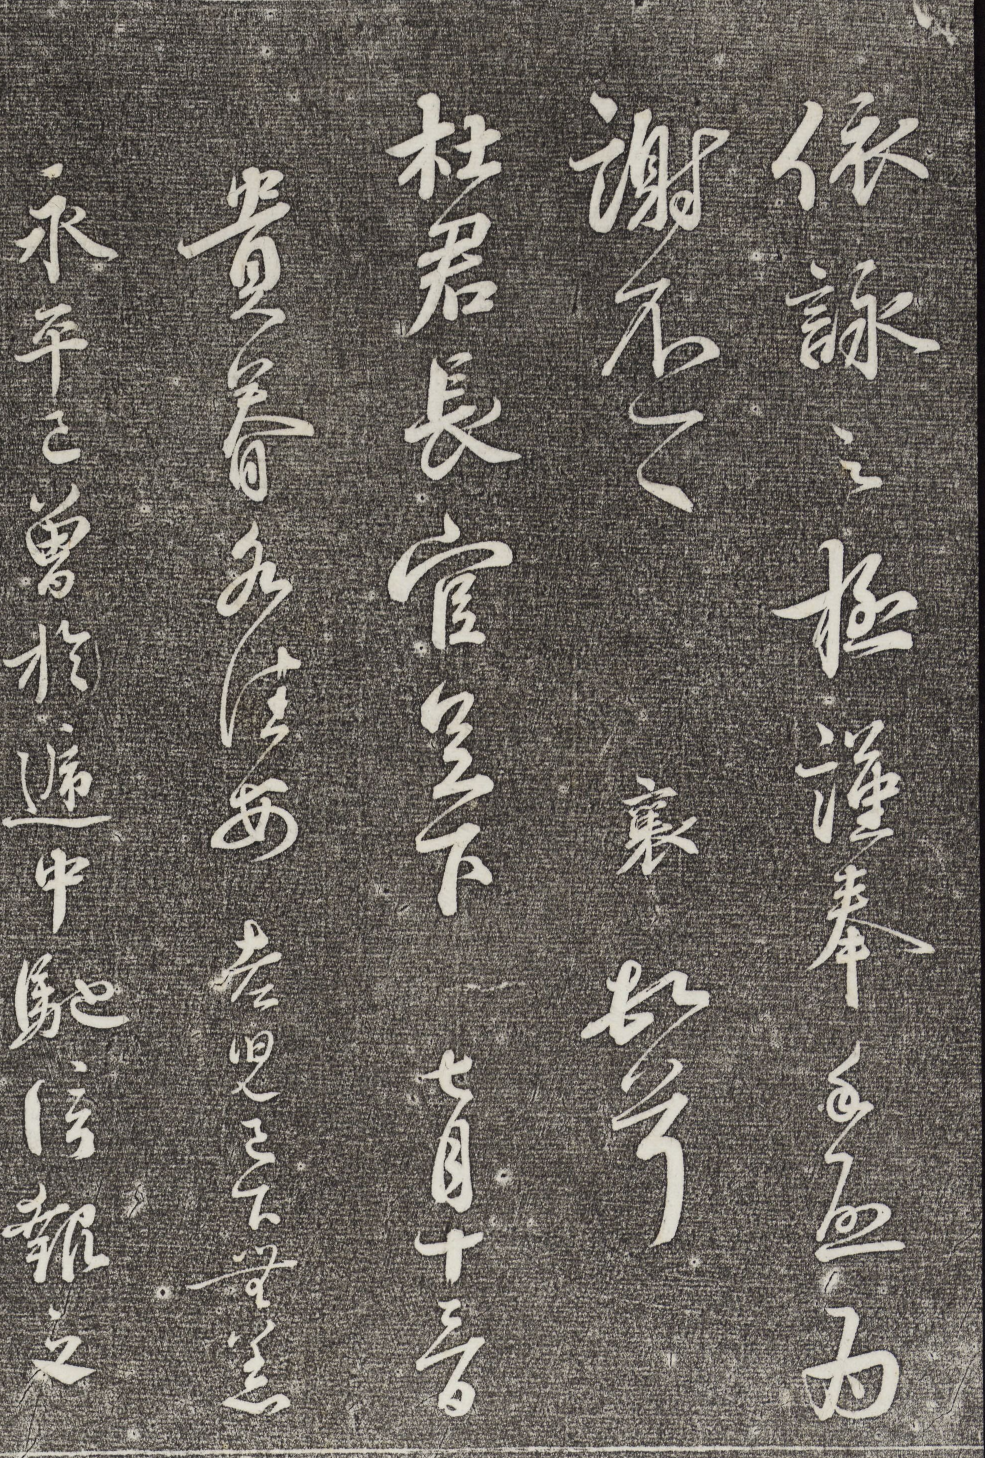 依詠之極謹奉手啟為
謝不一一 襄頓首
杜君長官足下 七月十三日
貴眷各佳安 老兒已下無恙
永平已曾於遞中馳信報之